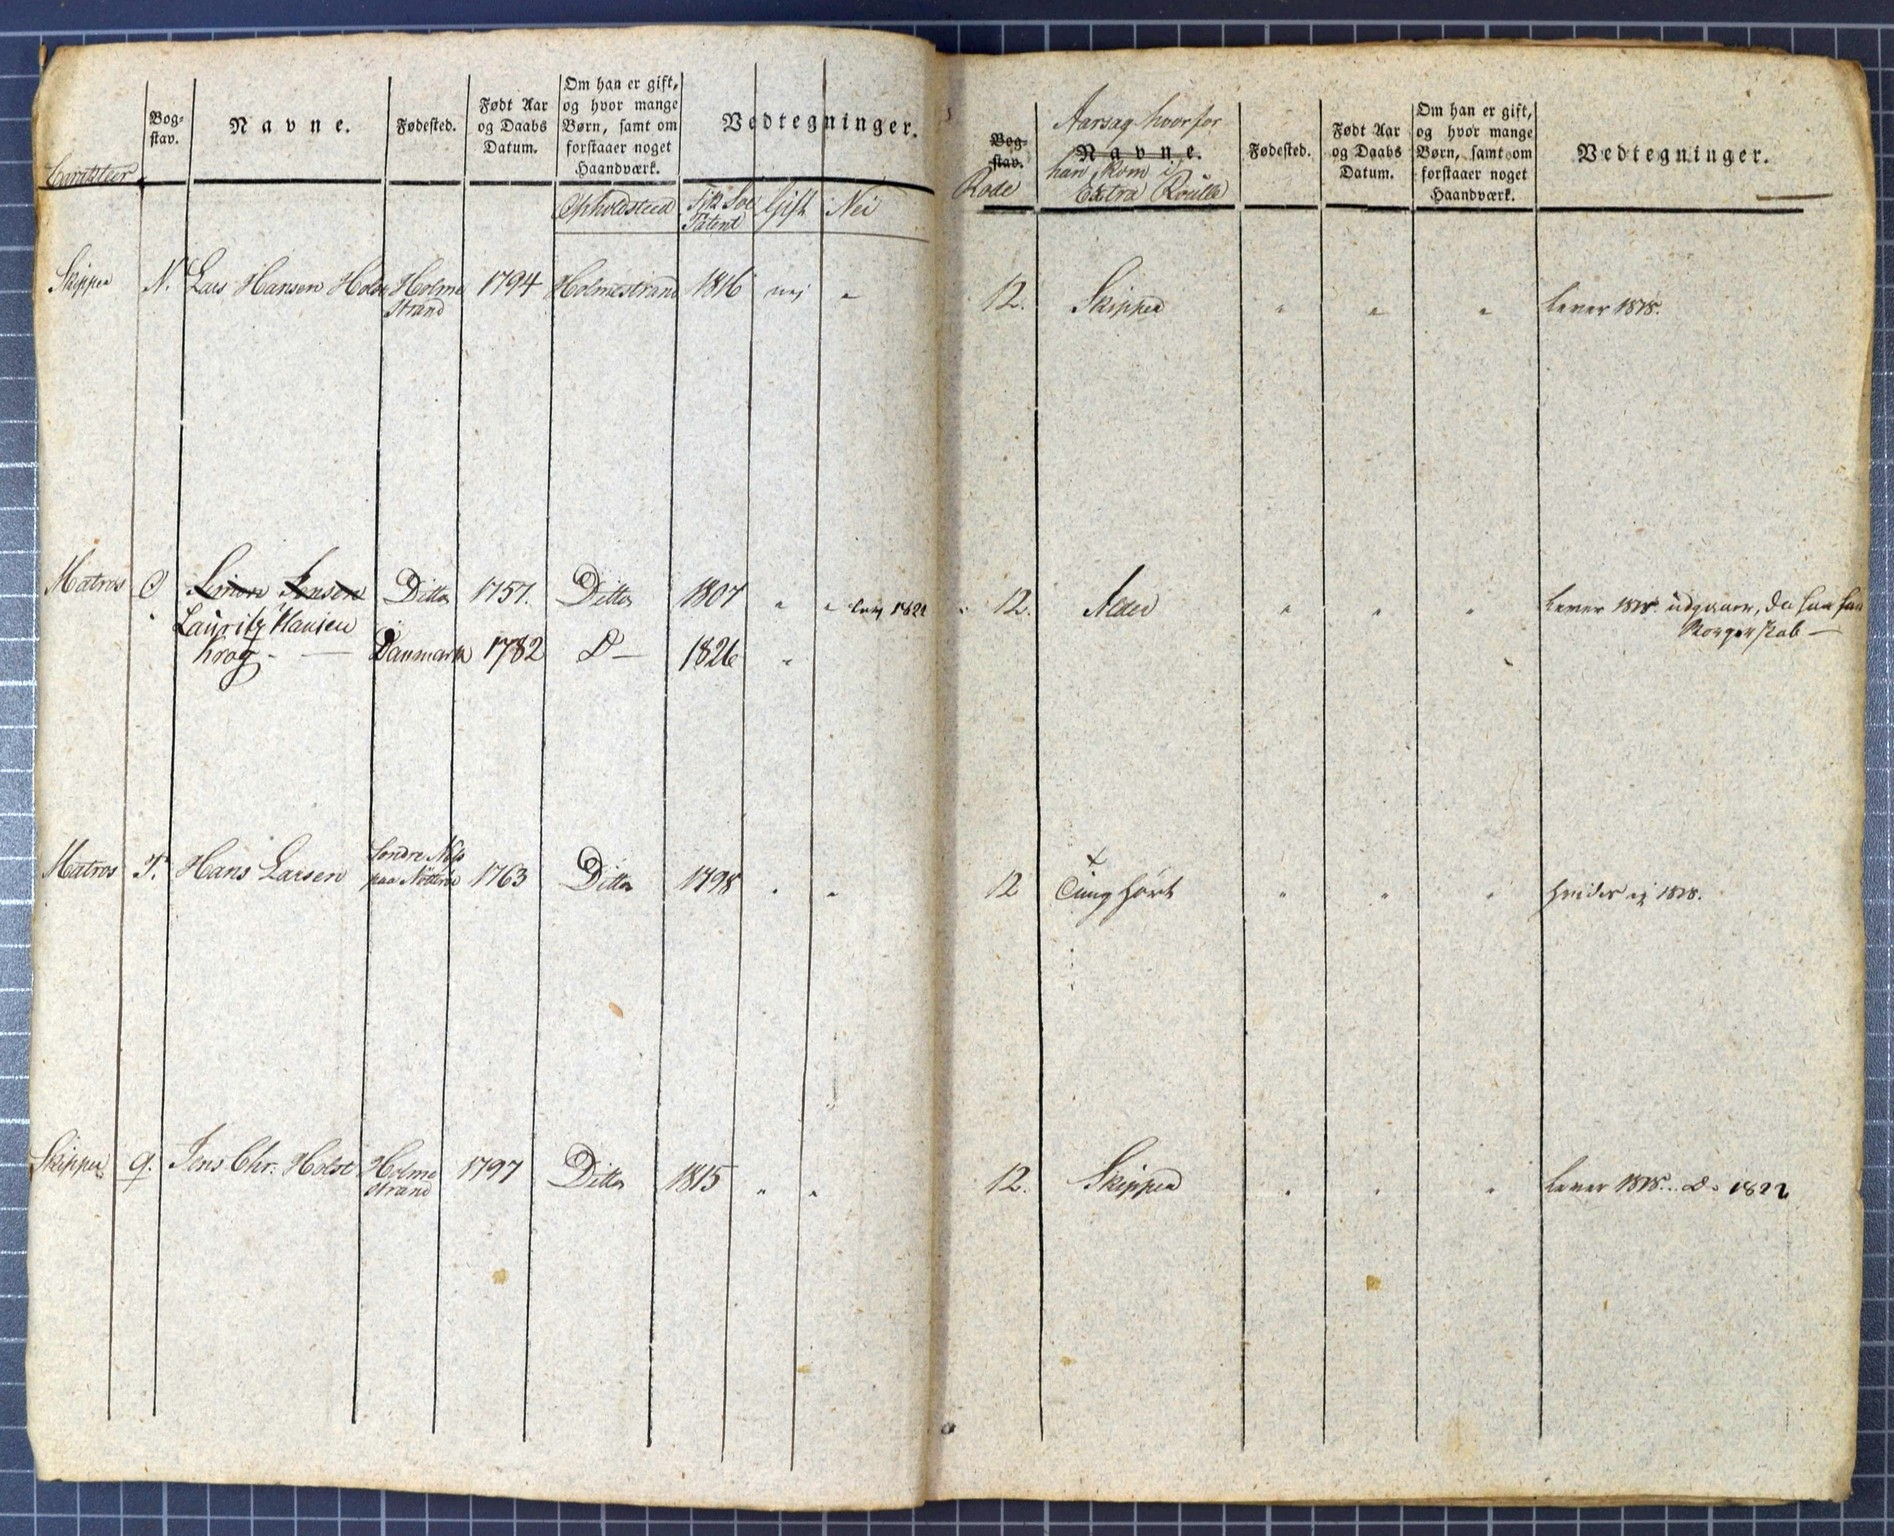 Carakteer
Bog-
stav.
Navne.
Fødested.
Født Aar
og Daabs
Datum.
Om han er gift,
og hvor mange
Børn, samt om
forstaaer noget
Haandværk.
Vedtegninger.
Opholdsteed
Gift
Nei
Patent
Skipper N. Lars Hansen Holmestrand 1794 Holmestrand 1816 nej "
strand
Matros O Simon Jensen Ditto 1757. Ditto 1807 " "
Lauritz Hansen
Krog - Danmark 1782 D— 1826 "
Søndre
Matros P. Hans Larsen paa Nøtterøe 1763 Ditto 1798 " "
Skipper q. Jens Chr. Holst Holme 1797 Ditto 1815 " "
strand
Bog-
stav.
Rode
Aarsag hvorfor
Navne.
han kom i
Extra Roulle
Fødested.
Født Aar
og Daabs
Datum.
Om han er gift,
og hvor mange
Børn, samt om
forstaaer noget
Haandværk.
Vedtegninger.
12. Skipper " " " lever 1818.
12. Alder " " " lever 1818. udgaaer, da han har
Borgerskab —
12 Tunghørt " " " 1818.
12. Skipper " " " lever 1818. D. 1822